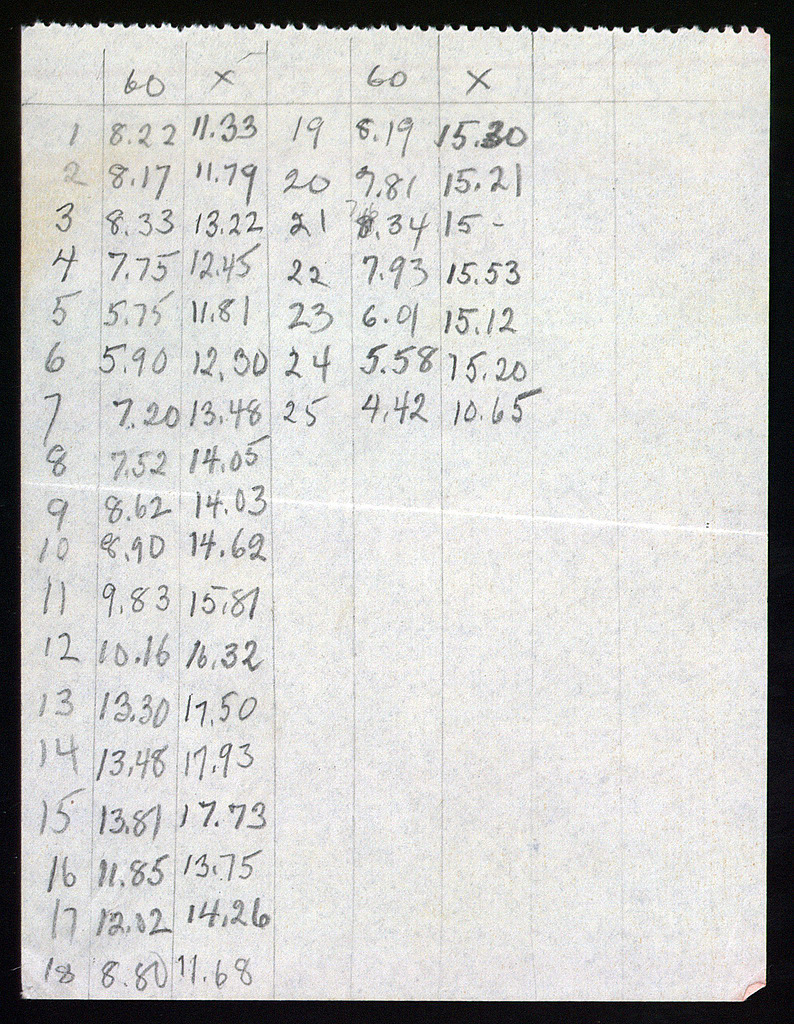 60 X 60 X
1 8.22 11.33 19 8.19 15.30
2 8.17 11.79 20 7.81 15.21
3 8.33 13.22 21 8.34 15 -
4 7.75 12.45 22 7.93 15.53
5 5.75 11.81 23 6.01 15.12
6 5.90 12.30 24 5.58 15.20
7 7.20 13.48 25 4.42 10.65
8 7.52 14.05
9 8.62 14.03
10 8.90 14.62
11 9.83 15.81
12 10.16 16.32
13 13.30 17.50
14 13.48 17.93
15 13.81 17.73
16 11.85 13.75
17 12.02 14.26
18 8.80 11.68